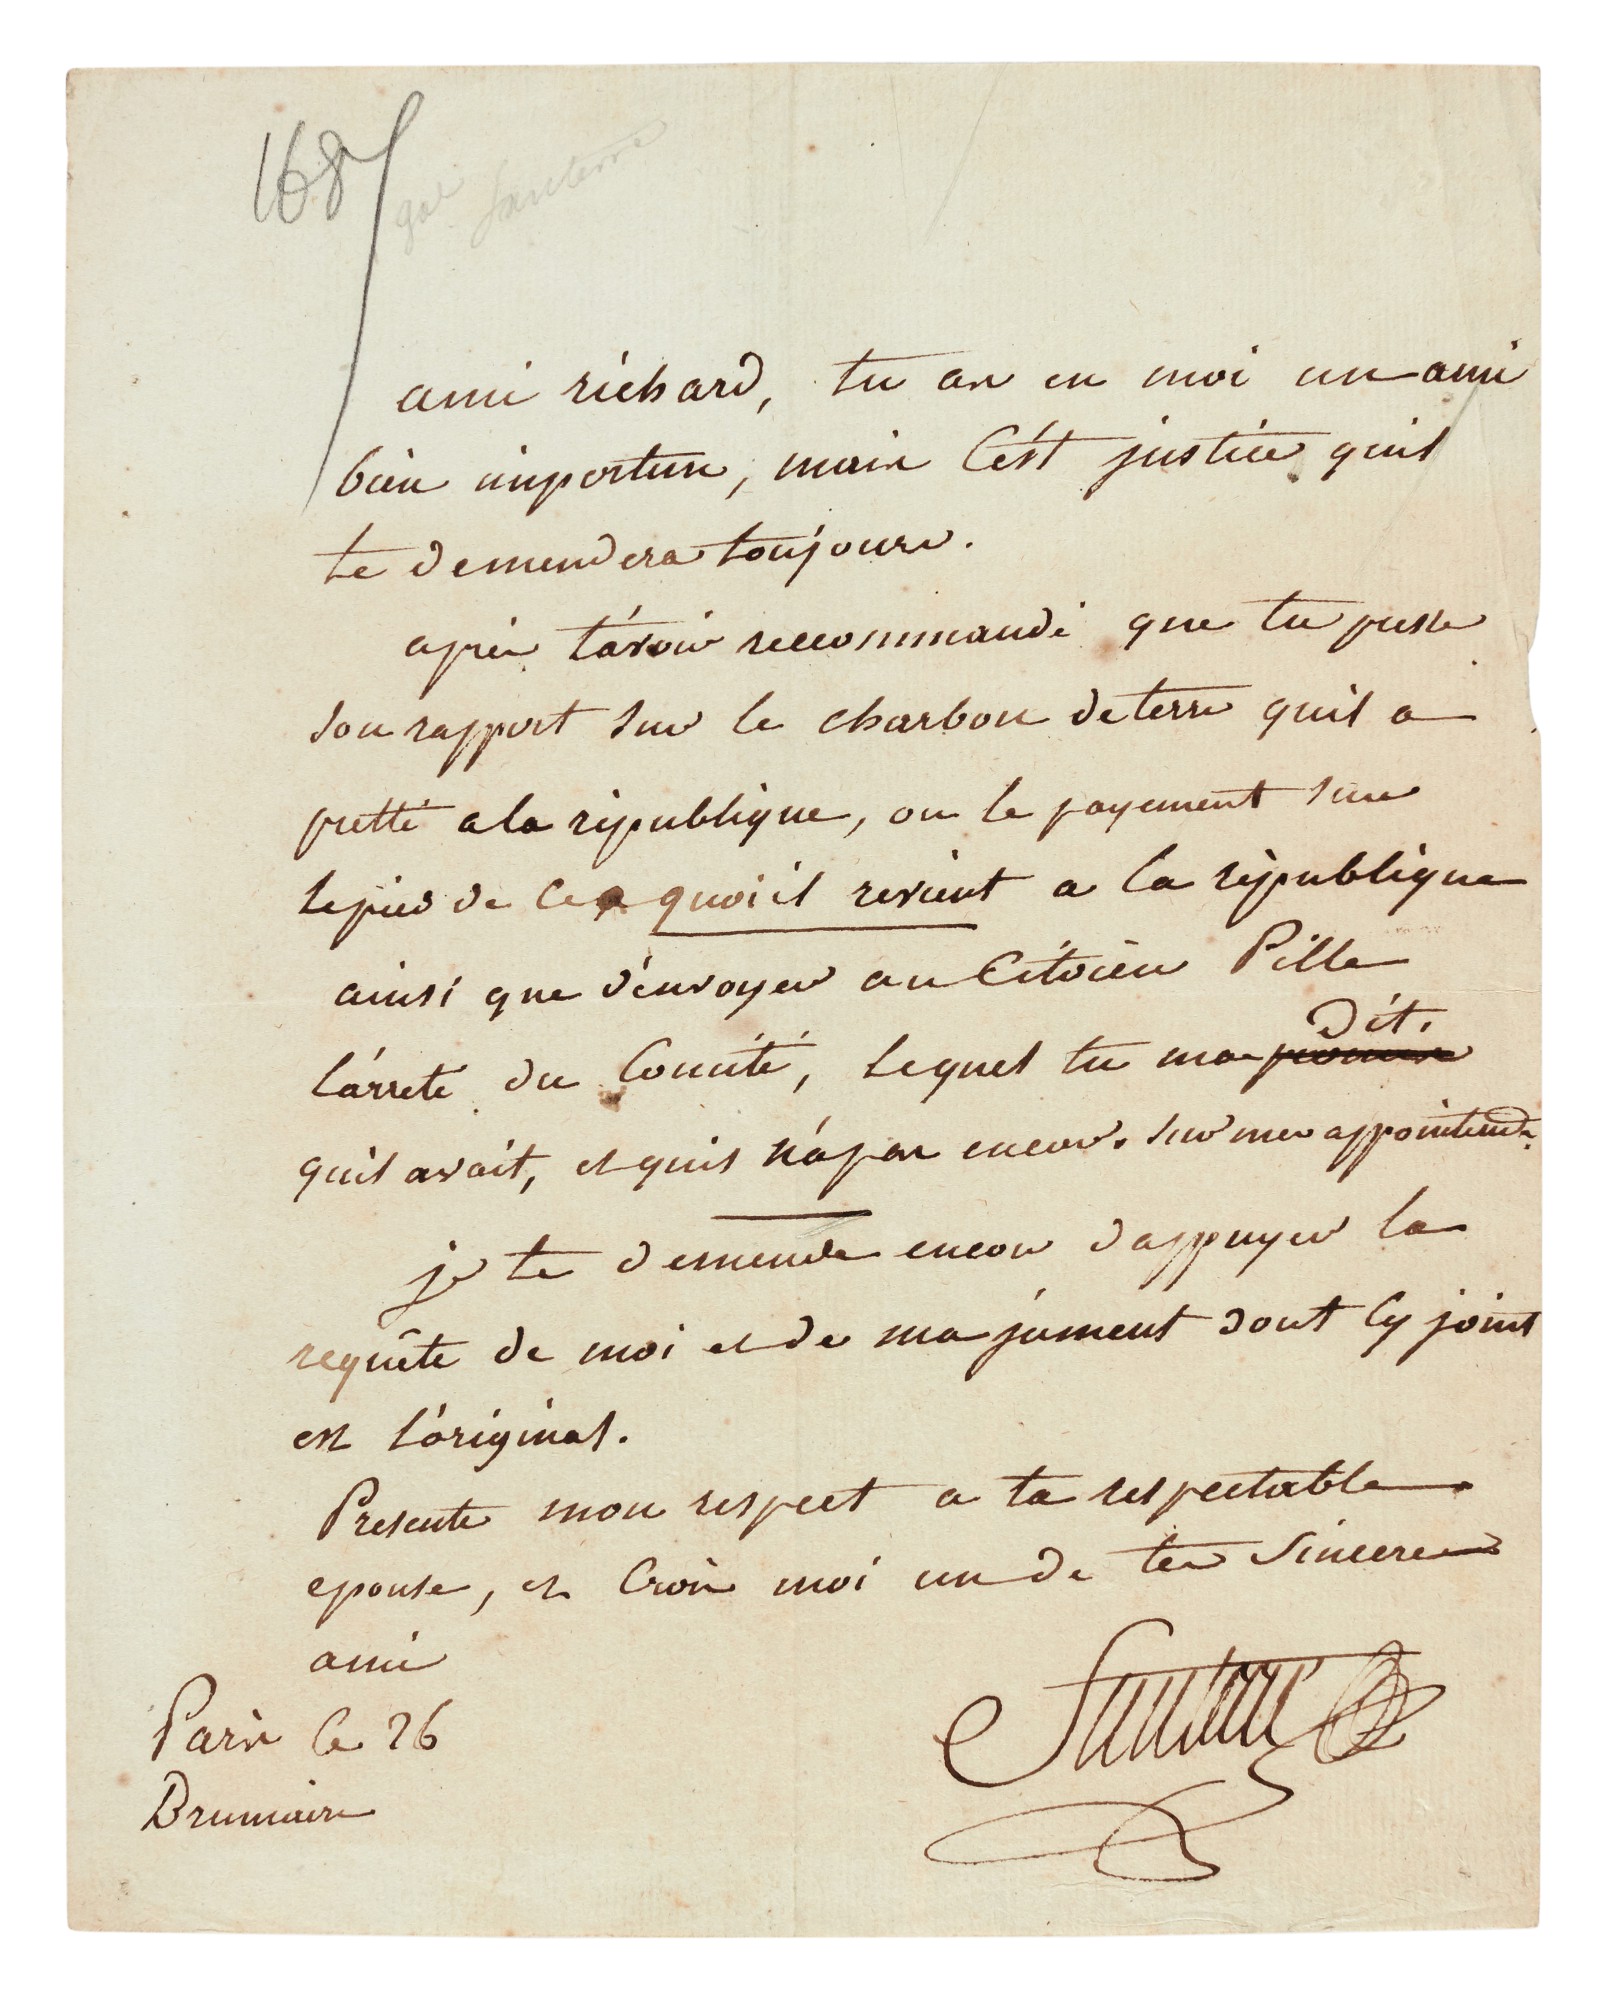 168
gal Santerre
ami richard, tu as en moi un ami
bien importun, mais C'est justice quil
te demendera toujours.
après t'avoir reccommandé que tu presse
son rapport sur le charbon de terre quil a
pretté a la république, ou le payement sur
le pied de ce quoi il revient a la république
ainsi que d'envoyer au Citoien Pille
l'arreté du Comité, lequel tu ma dit.
quil avait, et quil n'a pas encor. sur mes
je te demende encor d'appuyer la
requête de moi et de ma jument dont Cy joint
est l'original.
Presente mon respect a ta respectable
epouse, et Crois moi un de tes Sinceres
ami
Santerre
Paris Ce 26
Brumaire